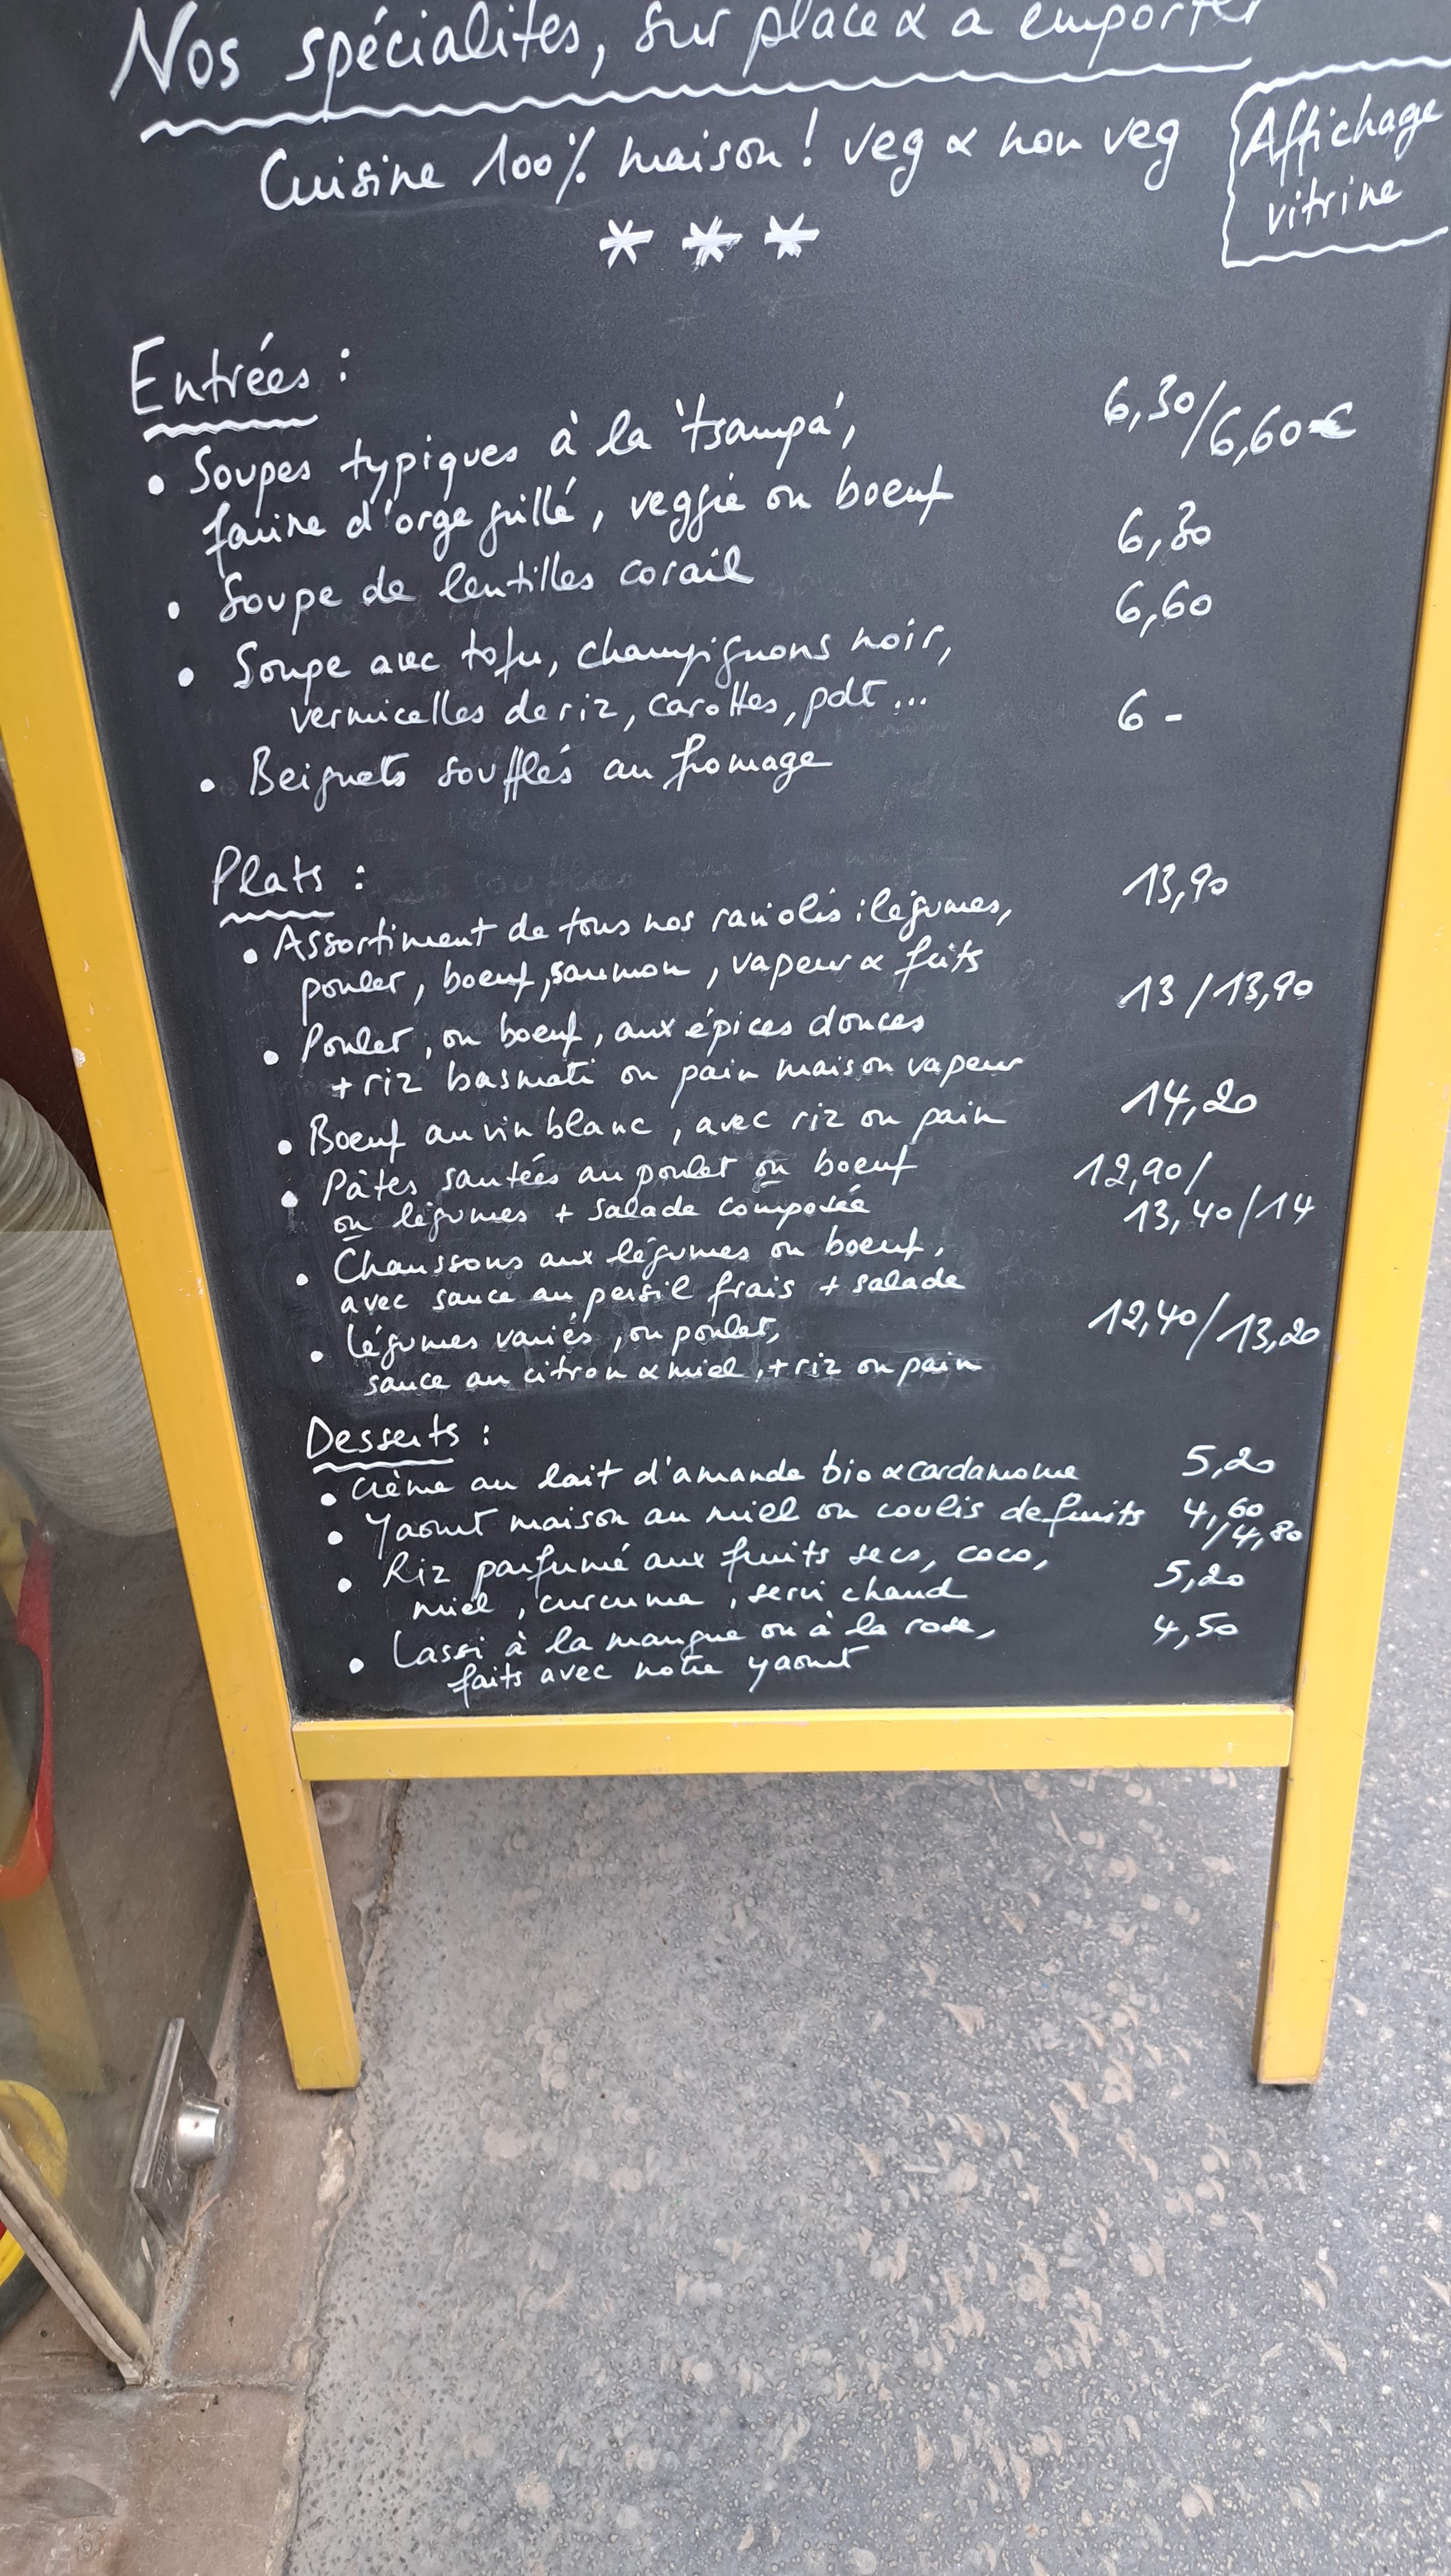 Nos spécialités, sur place & à emporter
Cuisine 100% maison! veg & non veg
Affichage
vitrine
* * *
Entrées :
• Soupes typiques à la 'tsampa', 6,30/6,60 €
farine d'orge grillé, veggie ou boeuf
• Soupe de lentilles corail 6,30
• Soupe avec tofu, champignons noir, 6,60
vermicelles de riz, carottes, pdt...
• Beignets soufflés au fromage 6 -
Plats :
• Assortiment de tous nos raviolis : légumes, 13,90
poulet, boeuf, saumon, vapeur & frits
• Poulet, ou boeuf, aux épices douces 13/13,90
+ riz basmati ou pain maison vapeur
• Boeuf au vin blanc, avec riz ou pain 14,20
• Pâtes sautées au poulet ou boeuf 12,90/
ou légumes + salade composée 13,40/14
• Chaussons aux légumes ou boeuf,
avec sauce au persil frais + salade
• Légumes variés, ou poulet, 12,40/13,20
sauce au citron & miel, + riz ou pain
Desserts :
• Crème au lait d'amande bio & cardamome 5,20
• Yaourt maison au miel ou coulis de fruits 4,60
/4,80
• Riz parfumé aux fruits secs, coco, 5,20
miel, curcuma, servi chaud
• Lassi à la mangue ou à la rose, 4,50
faits avec notre yaourt